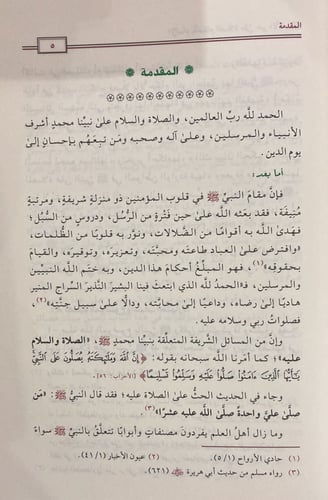 المقدمة
٥
المقدمة
الحمد لله ربِّ العالمين، والصلاة والسلام على نبيِّنا محمدٍ أشرف
الأنبياء والمرسلين، وعلى آله وصحبه ومَن تبعهُم بإحسانٍ إلى
يوم الدين.
أما بعد:
فإنَّ مقامَ النبيِّ ﷺ في قلوب المؤمنين ذو منزلةٍ شريفةٍ، ومرتبةٍ
مُنِيفة، فقد بعثه الله على حين فترةٍ من الرُّسل، ودروسٍ من السُّبل؛
فهدَى اللهُ به أقوامًا من الضَّلالات، ونوَّر به قلوبًا من الظُّلمات،
«وافترض على العباد طاعتَه ومحبَّتَه، وتعزيرَه، وتوقيرَه، والقيامَ
بحقوقِه»(١)، فهو المبلِّغُ أحكامَ هذا الدين، وبه ختم اللهُ النبيِّين
والمرسلين، فـ«الحمد لله الذي ابتعث فينا البشيرَ النَّذيرَ السراجَ المنير
هاديًا إلى رضاه، وداعيًا إلى محابِّه، ودالًّا على سبيل جنَّتِه»(٢)،
فصلواتُ ربي وسلامه عليه.
وإنَّ من المسائل الشريفة المتعلِّقة بنبيِّنا محمدٍ ﷺ، «الصلاة والسلام
عليه»؛ كما أمرنا الله سبحانه بقوله: ﴿إِنَّ ٱللَّهَ وَمَلَٰٓئِكَتَهُۥ يُصَلُّونَ عَلَى ٱلنَّبِيِّ
يَٰٓأَيُّهَا ٱلَّذِينَ ءَامَنُواْ صَلُّواْ عَلَيْهِ وَسَلِّمُواْ تَسْلِيمًا﴾ [الأحزاب: ٥٦].
وجاء في الحديث الحثُّ على الصلاة عليه؛ فقد قال النبيُّ ﷺ: «مَن
صلَّى عليَّ واحدةً صلَّى الله عليه عشرًا»(٣).
وما زال أهلُ العلم يفردون مصنفاتٍ وأبوابًا تتعلَّق بالنبيِّ ﷺ سواءً
(١) حادي الأرواح (٥/١). (٢) عيون الأخبار (٤١/١).
(٣) رواه مسلم من حديث أبي هريرة (٦٢١).